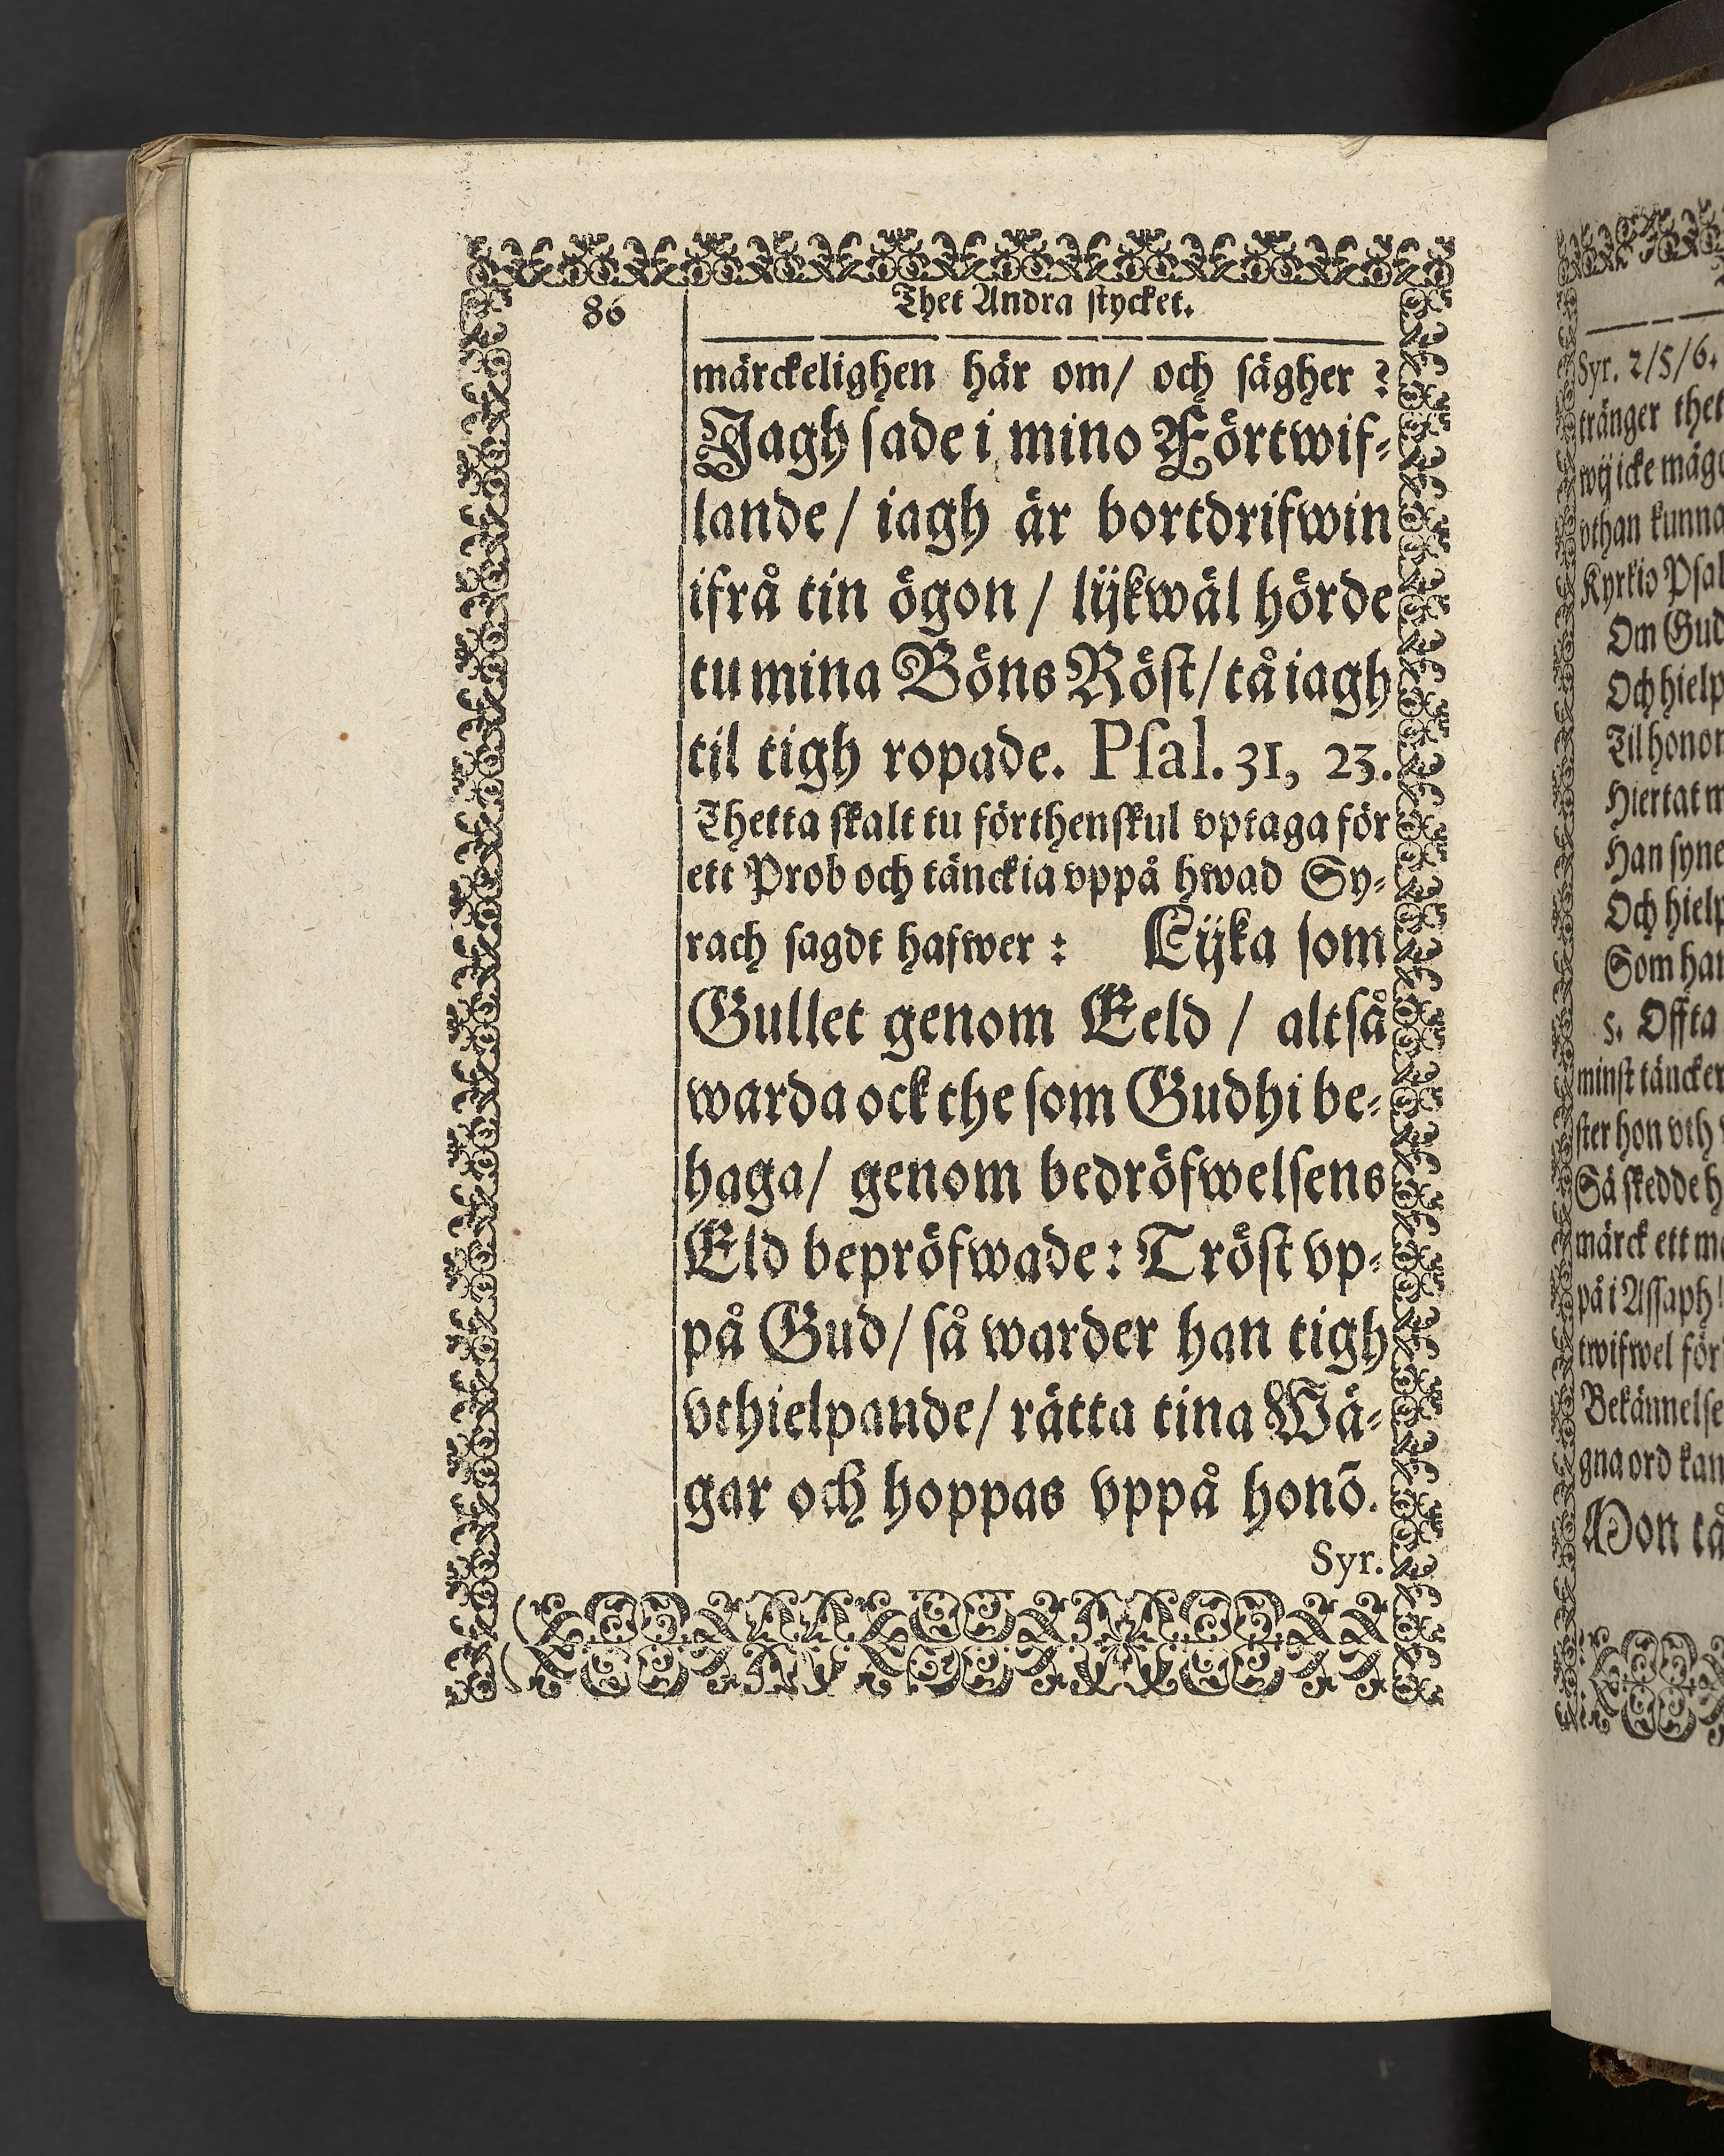 86
Thet Andra stycket.
märckelighen här om/ och sägher ?
Jagh sade i mino Förtwif-
lande/ iagh är bortdrifwin
ifrå tin ögon / lijkwäl hörde
tu mina Böns Röst/ tå iagh
til tigh ropade. Psal. 31, 23.
Thetta skalt tu förthenskul vptaga för
ett Prob och tänckia vppå hwad Sy-
rach sagdt hafwer : Lijka som
Gullet genom Eeld / altså
warda ock the som Gudhi be-
haga/ genom bedröfwelsens
Eld bepröfwade: Tröst vp-
på Gud/ så warder han tigh
vthielpande/ rätta tina Wä-
gar och hoppas vppå honō.
Syr.
Syr. 2/5/6.
tränger thet
wij icke
vthan kunna
Kyrkio
Om Gud
Och hielp
Til
Hiertat
Han syne
Och hielp
Som
5. Offta
minst täncker
ster hon vth
Så skedde
märck ett
på i Assaph
twifwel för
Bekännelse
gna ord kan
Hon tå